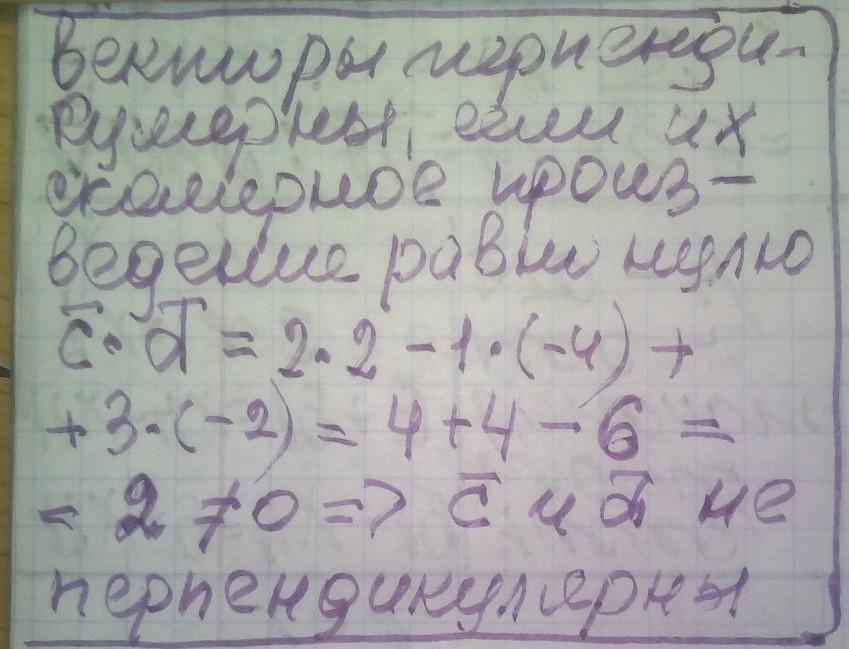 векторы перпенди-
кулярны, если их
скалярное произ-
ведение равно нулю
c̅ · d̅ = 2·2 - 1·(-4) +
+ 3·(-2) = 4 + 4 - 6 =
= 2 ≠ 0 => c̅ и d̅ не
перпендикулярны